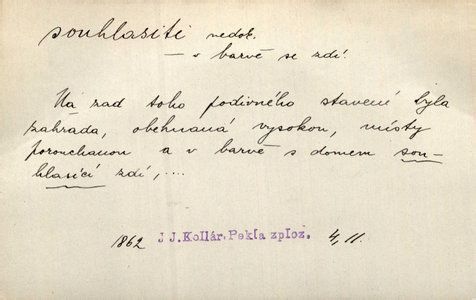 souhlasiti nedok.
— v barvě se zdí.
Na zad toho podivného stavení byla
zahrada, obehnaná vysokou, místy
porouchanou a v barvě s domem sou-
hlasící zdí, ....
1862 J J. Kollár. Pekla zploz. 4, 11.